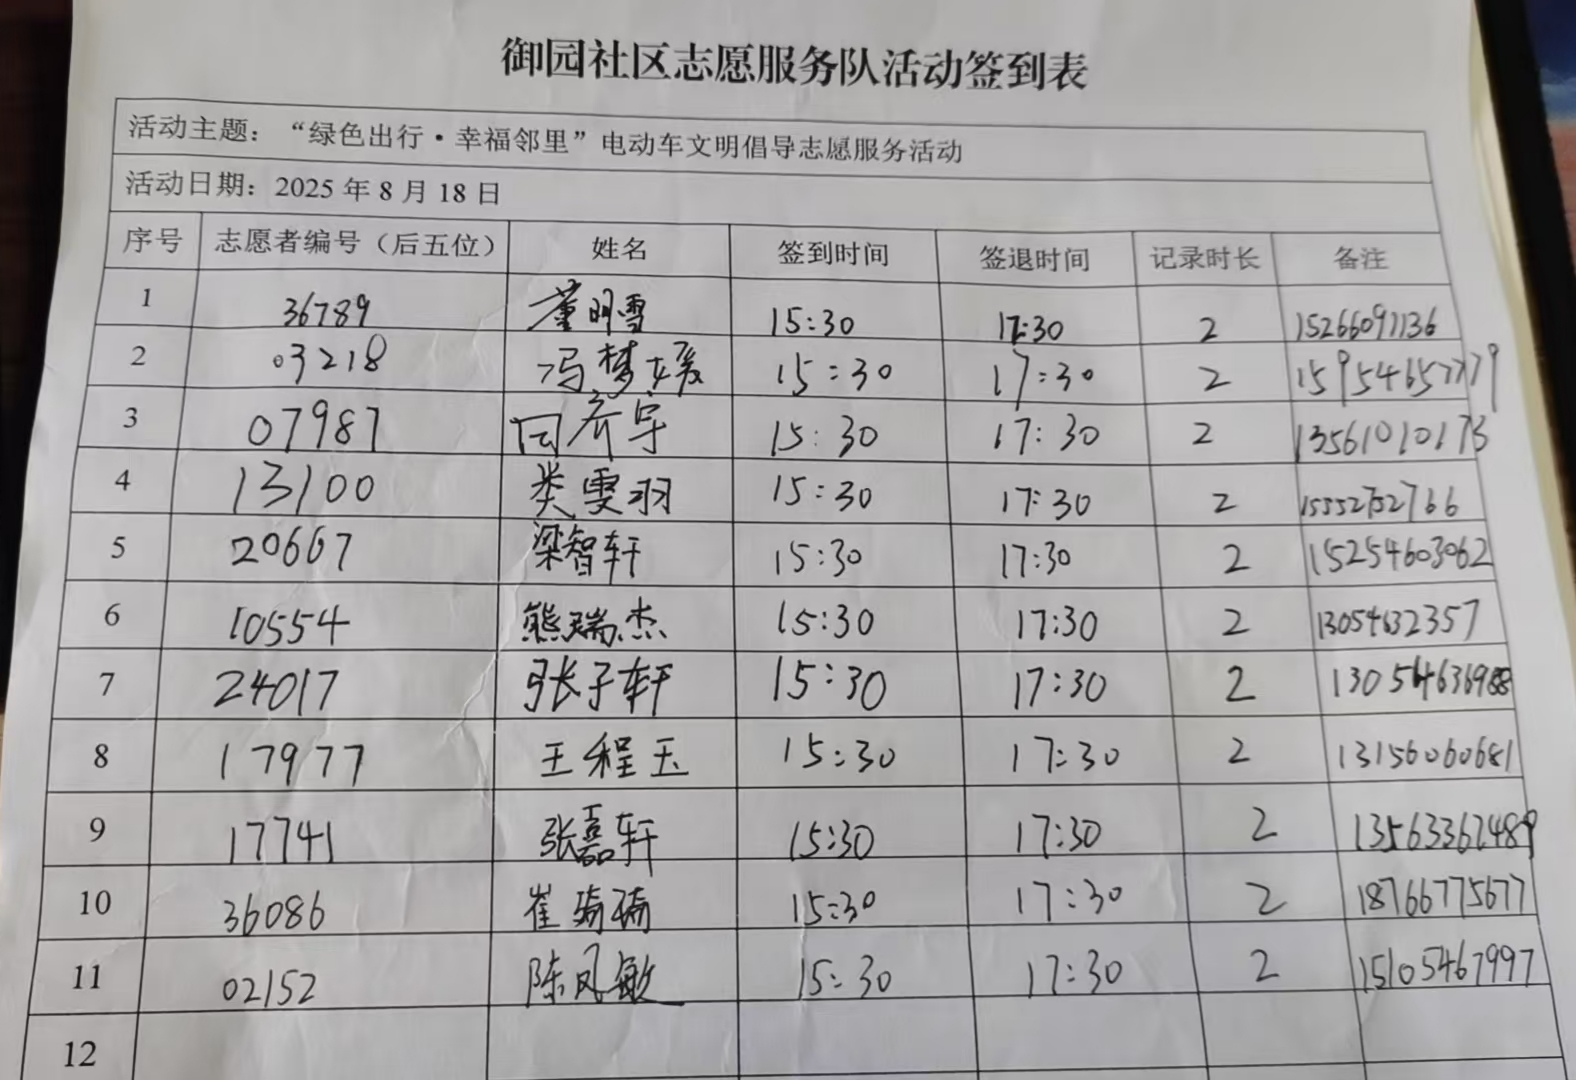 御园社区志愿服务队活动签到表
活动主题：“绿色出行·幸福邻里”电动车文明倡导志愿服务活动
活动日期：2025 年 8 月 18 日
序号 志愿者编号（后五位） 姓名 签到时间 签退时间 记录时长 备注
1 36789 董明雪 15:30 17:30 2 15266091136
2 03218 冯梦媛 15:30 17:30 2
3 07987 15:30 17:30 2 13561010173
4 13100 类雯羽 15:30 17:30 2 15552752766
5 20667 梁智轩 15:30 17:30 2 15254603062
6 10554 熊瑞杰 15:30 17:30 2 13054632357
7 24017 张子轩 15:30 17:30 2 13054636988
8 17977 王程玉 15:30 17:30 2 13156060681
9 17741 张嘉轩 15:30 17:30 2 13563362489
10 36086 崔 15:30 17:30 2 18766775677
11 02152 陈凤敏 15:30 17:30 2 15105467997
12